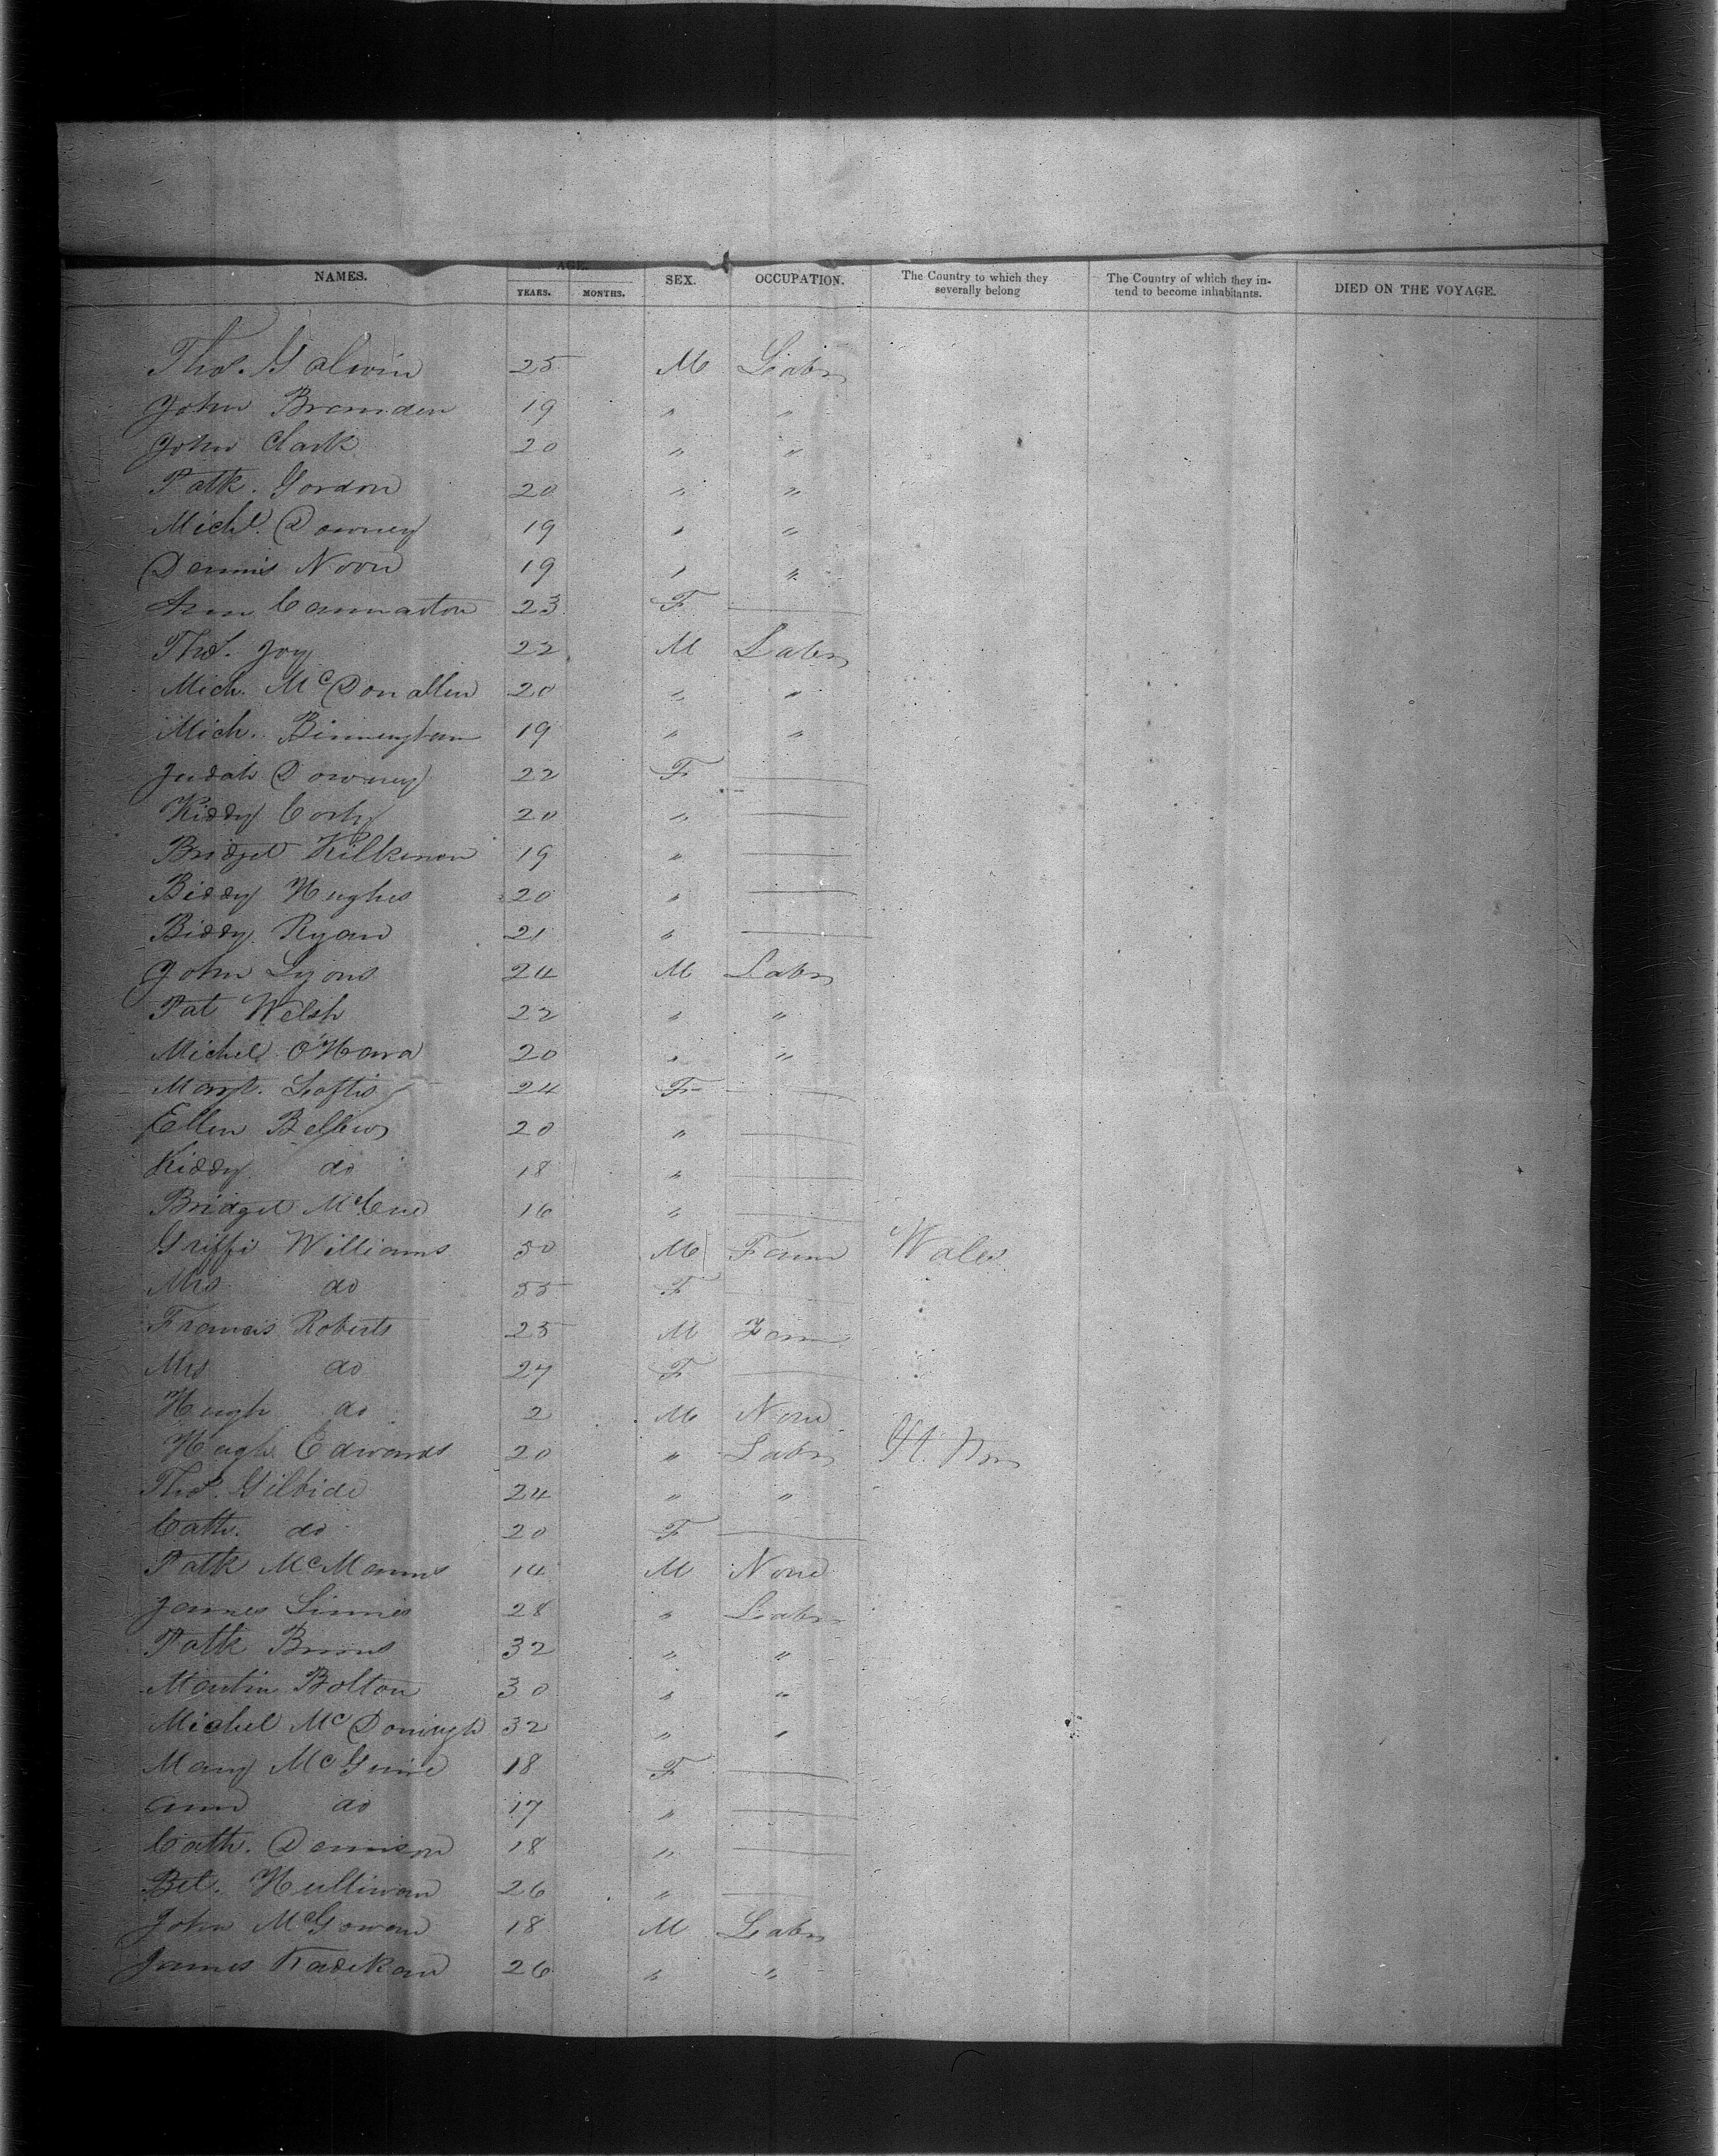 NAMES. AGE. YEARS. MONTHS. SEX. OCCUPATION. The Country to which they severally belong The Country of which they intend to become inhabitants. DIED ON THE VOYAGE.
Thos. Galwin 25 M Labr
John Bramden 19 " "
John Clark 20 " "
Patk. Gordon 20 " "
Michl. Downey 19 " "
Dennis Noon 19 " "
Ann 23 F
Thos. Joy 22 M Labr
Mich. McDonallen 20 " "
Mich. Birmingham 19 " "
Judah Downey 22 F
Kiddy 20 "
Bridget Kilkenon 19 "
Biddy Hughes 20 "
Biddy Ryan 21 "
John Lyons 24 M Labr
Pat Welsh 22 " "
Michel O'Hara 20 " "
Margt. Loftis 24 F
Ellen Bellew 20 "
Kiddy do 18 "
Bridget McCue 16 "
Griffi Williams 50 M Farm Wales
Mrs do 55 F
Francis Roberts 25 M Farm
Mrs do 27 F
Hugh do 2 M None
Hugh Edwards 20 " Labr
Thos. Gilbide 24 " "
Cath. do 20 F
Patk McManus 14 M None
James Linnie 28 " Labr
Patk Burns 32 " "
Martin Bolton 30 " "
Michel McDonough 32 " "
Mary McGuire 18 F
Ann do 17 "
Cath. Dennison 18 "
Bet. Hullivan 26 "
John McGowan 18 M Labr
James Kadekan 26 " "